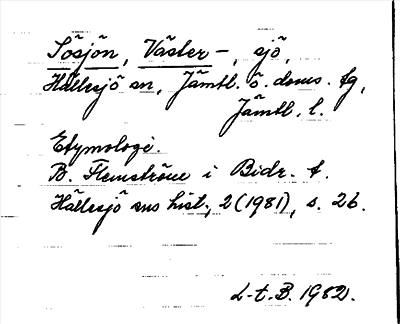 Sösjön, Väster-, sjö,
Hällesjö sn, Jämtl. ö. doms. tg,
Jämtl. l.
Etymologi.
B. Flemström i Bidr. t.
Hällesjö sns hist., 2 (1981), s. 26.
L-t. B. 1982.